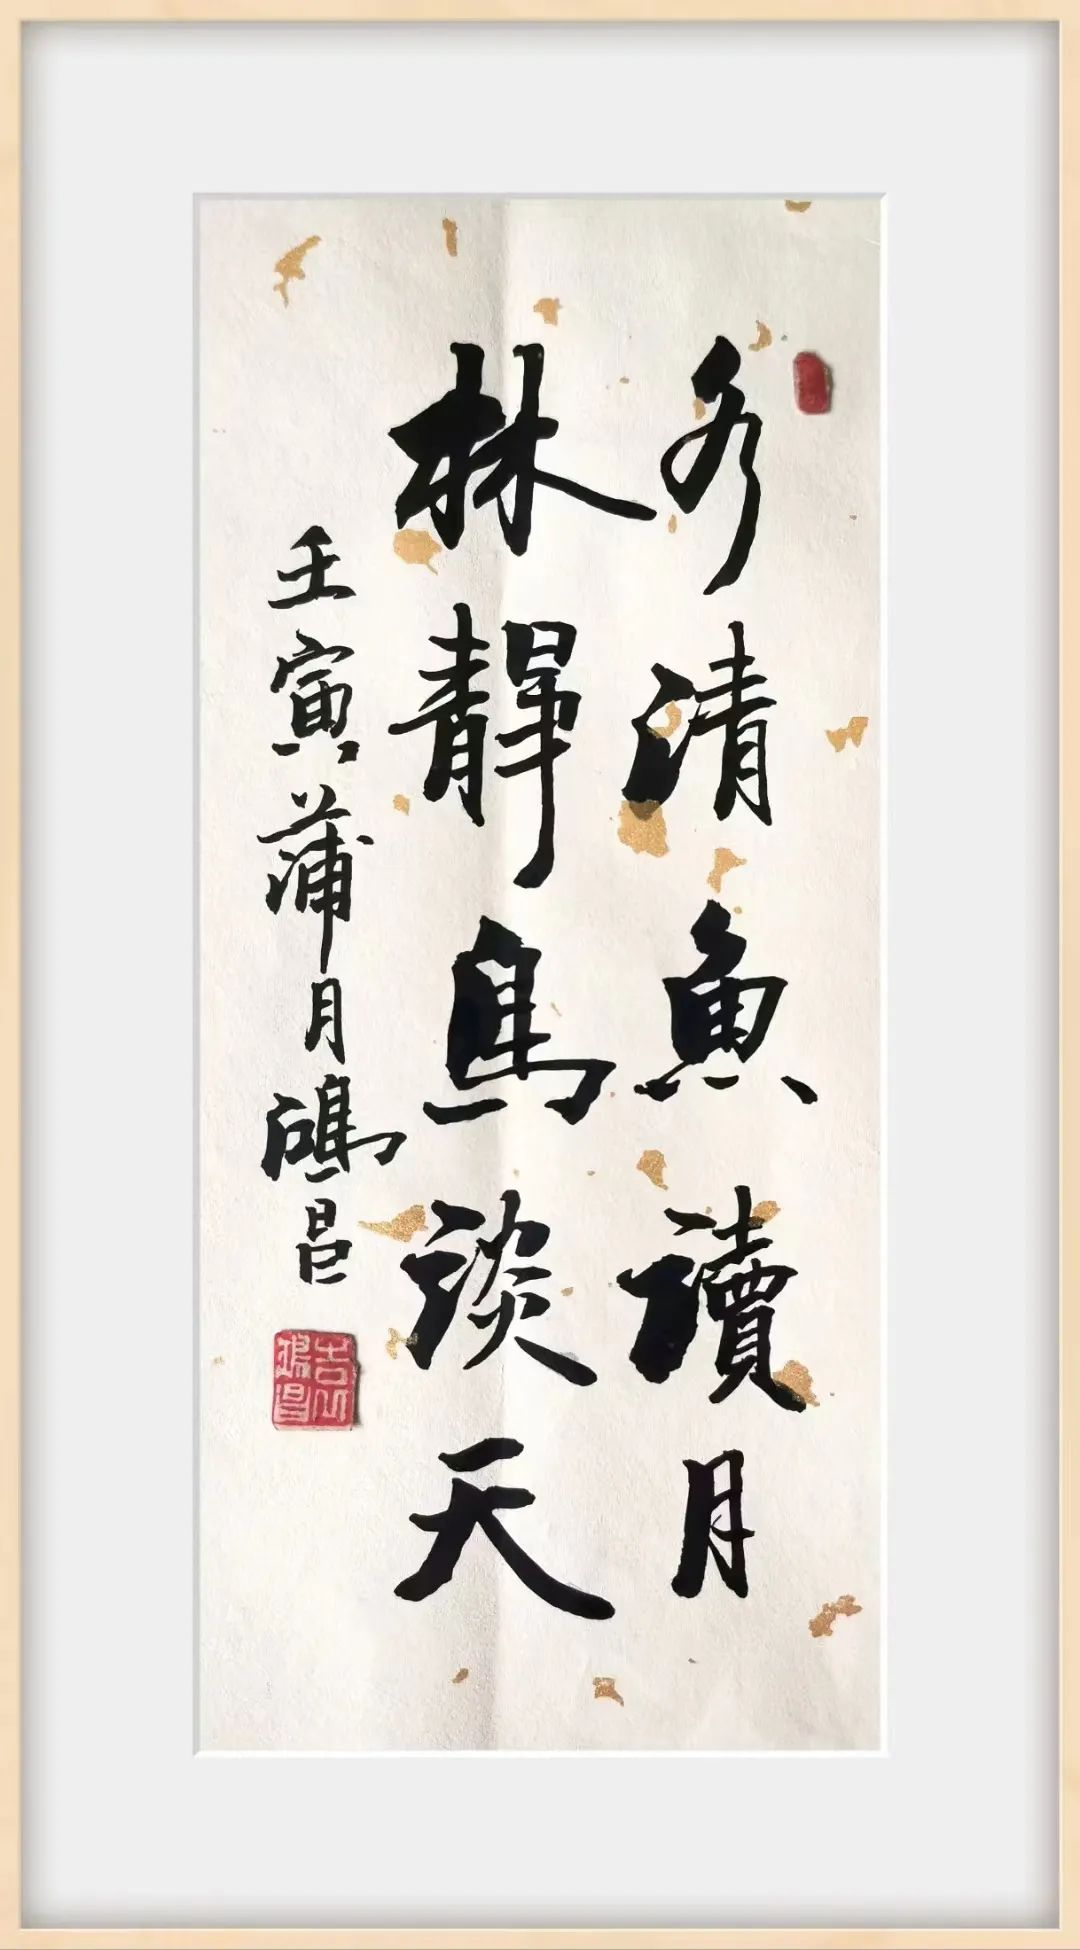 水清魚讀月
林靜鳥談天
壬寅蒲月鴻昌